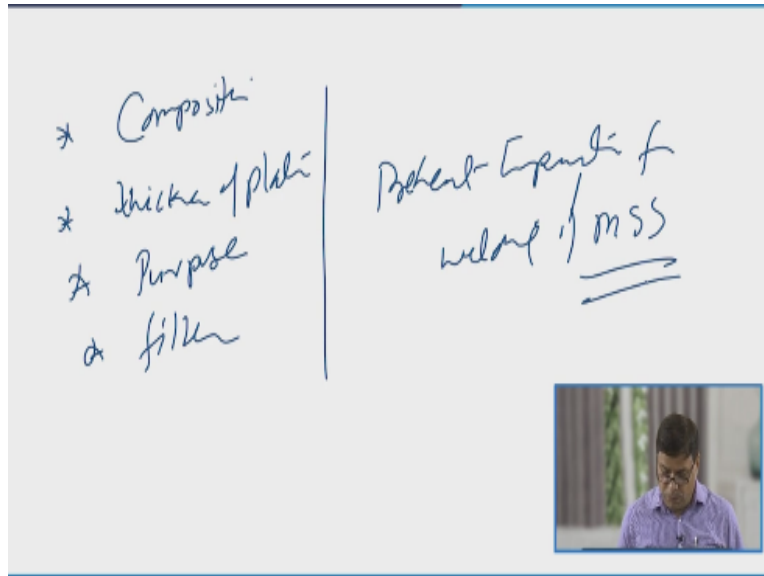 * Composition
* thickness of plate
* Purpose
* filler
Preheat Temperature for
welding of MSS